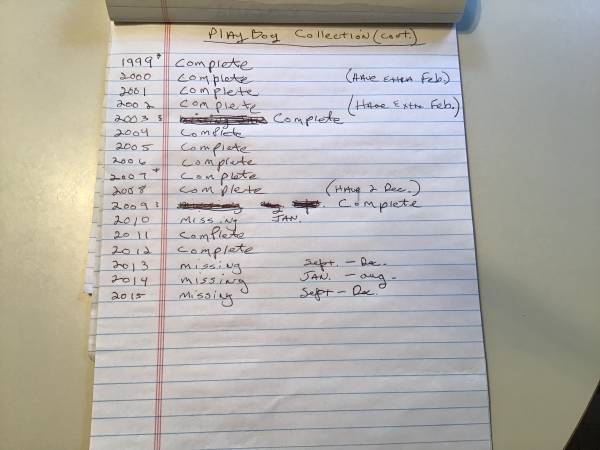 PlayBoy Collection (cont.)
1999* Complete
2000 Complete (Have Extra Feb.)
2001 Complete
2002 Complete (Have Extra Feb.)
2003: Complete
2004 Complete
2005 Complete
2006 Complete
2007* Complete
2008 Complete (Have 2 Dec.)
2009: Complete
2010 Missing JAN.
2011 Complete
2012 Complete
2013 missing Sept. - Dec.
2014 missing JAN. - aug.
2015 missing Sept - Dec.